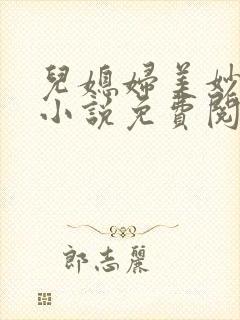 兒媳婦美妙
小說免費閱
郎志麗